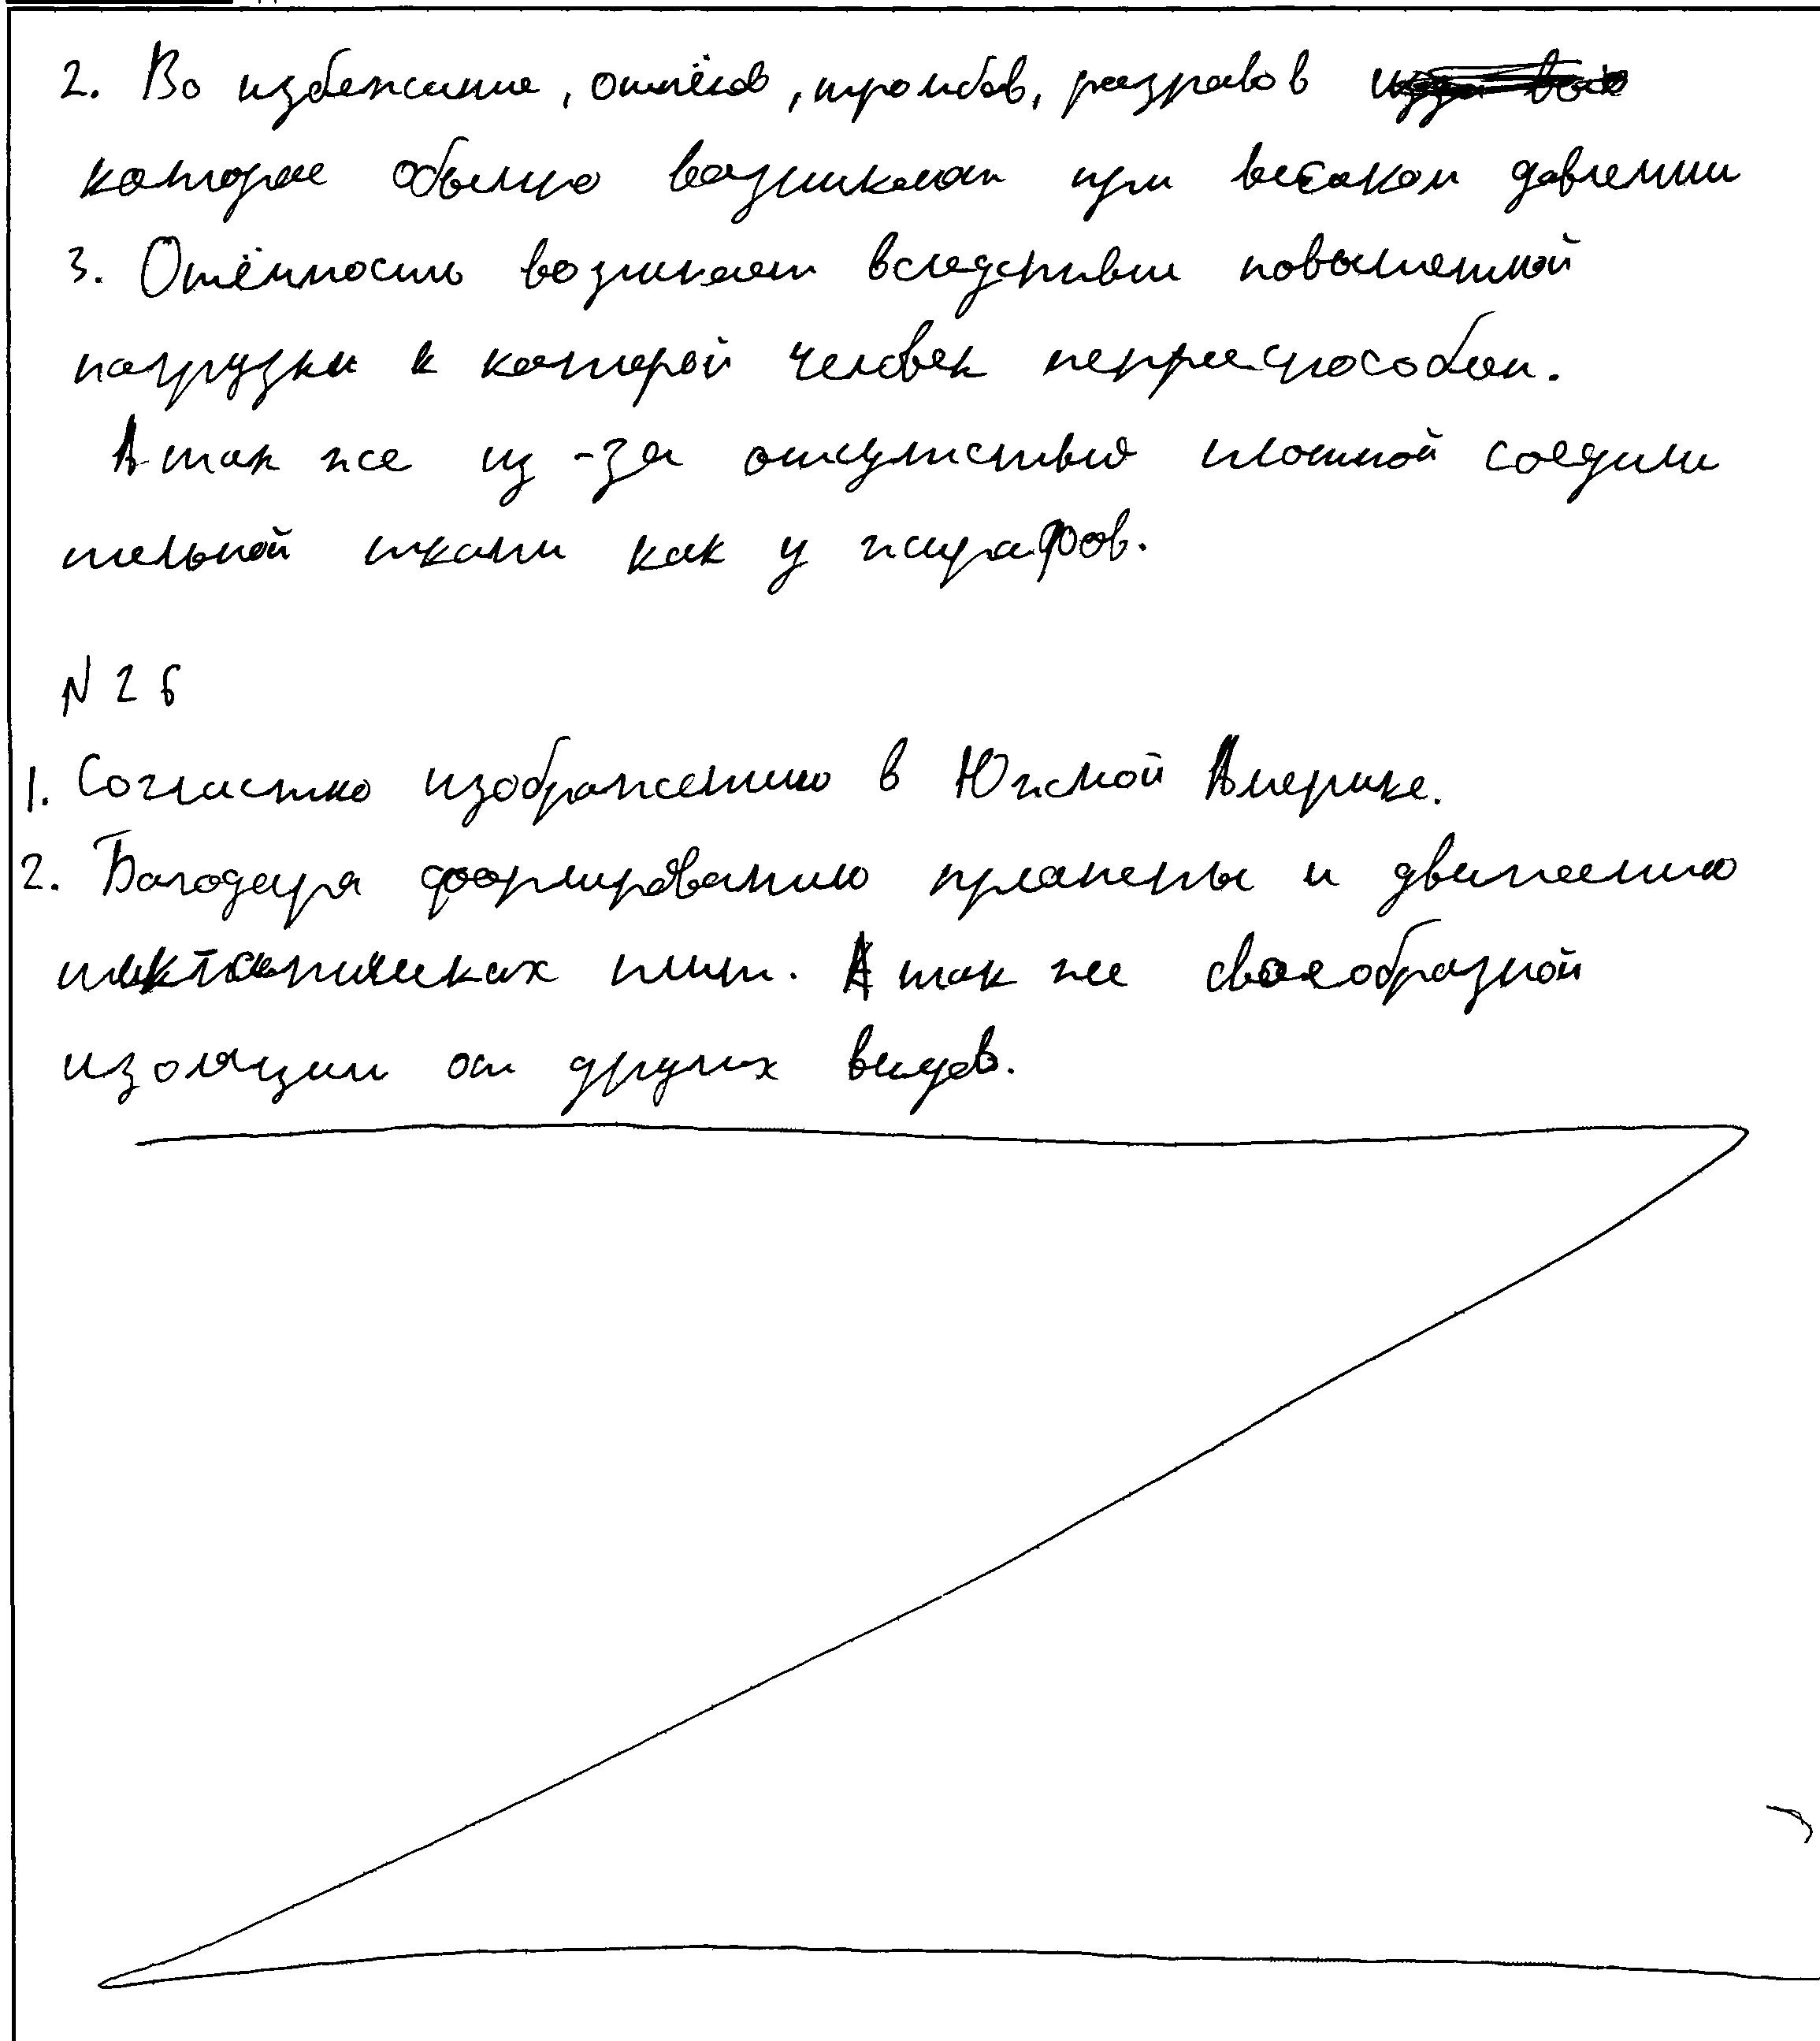 2. Во избежание, отёков, тромбов, разравов
которые обычно возникают при высоком давлении
3. Отёчность возникает вследствии повышенной
нагрузки к которой человек неприспособлен.
А так же из-за отсутствия плотной соедини
тельной ткани как у жирафов.
N 26
1. Согластно изображению в Южной Америке.
2. Багодаря формированию планеты и движению
тектонических плит. А так же своеобразной
изоляции от других видов.